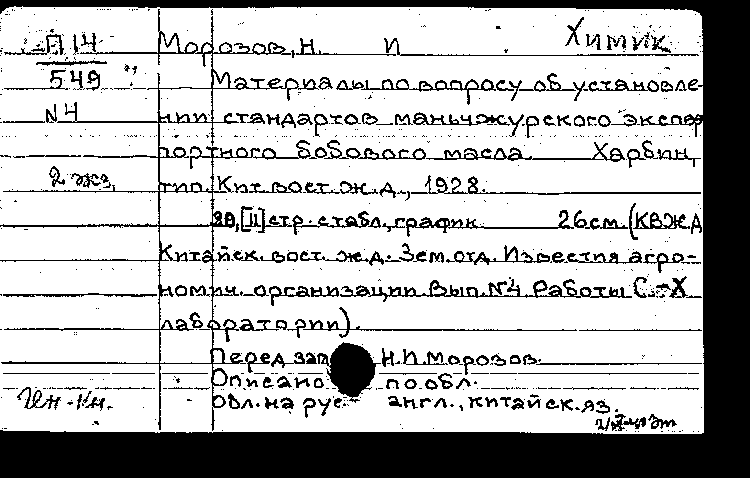 П 14 Морозов, Н. И. Химик
549 Материалы по вопросу об установле-
N4 нии стандартов маньчжурского экспор
портного бобового масла. Харбин,
2 экз. тип. Кит. вост. ж.д., 1928.
20, [II] стр. с табл., график. 26 см. (КВЖД
Китайск. вост. ж.д. Зем. отд. Известия агро-
номич. организации Вып. N4 Работы С.-Х
лаборатории).
Перед заг Н.И. Морозов.
Описано по обл.
Ин-Кн. Обл. на рус англ., китайск. яз.